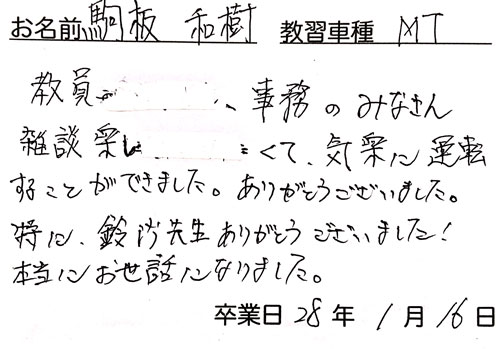 お名前 駒板 和樹 教習車種 MT
教員が 、事務のみなさん
雑談楽し くて、気楽に運転
することができました。ありがとうございました。
特に、鈴 先生ありがとうございました!
本当にお世話になりました。
卒業日 28年 1月 16日